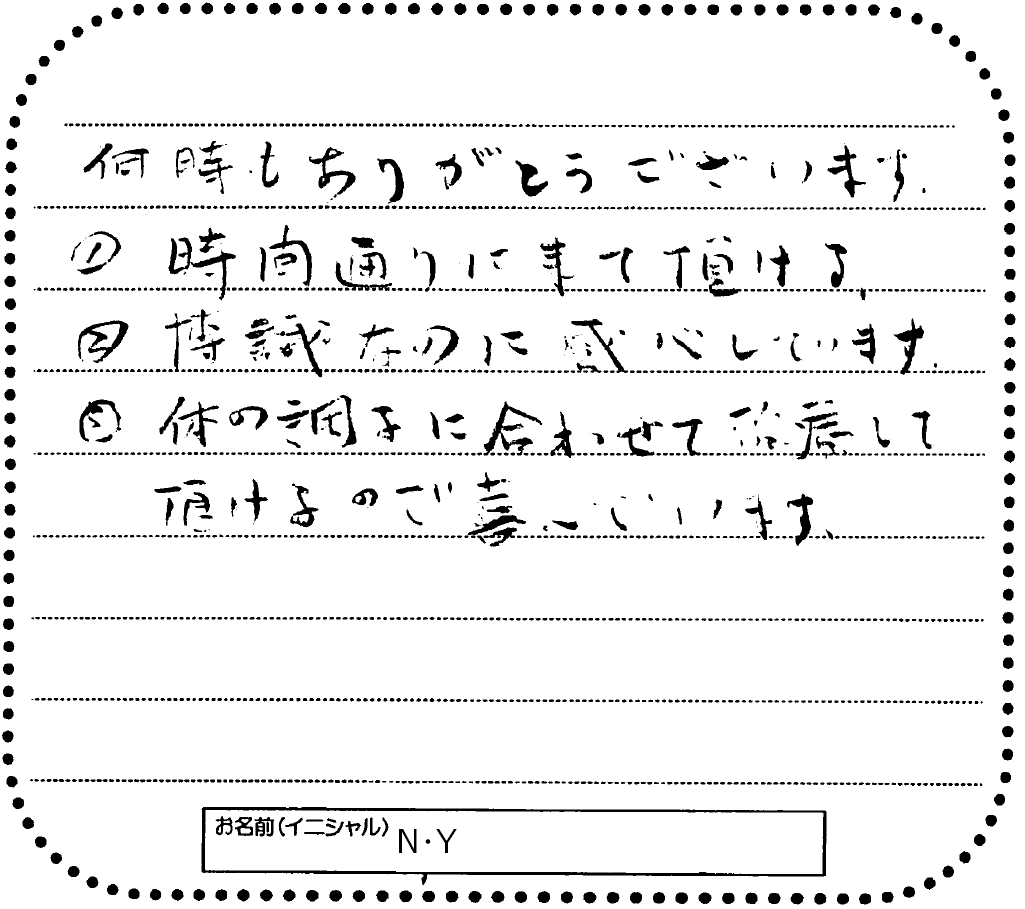 何時もありがとうございます。
① 時間通りに来て頂ける。
② 博識なのに感心しています。
③ 体の調子に合わせて治療して
頂けるので喜んでいます。
お名前(イニシャル) N・Y